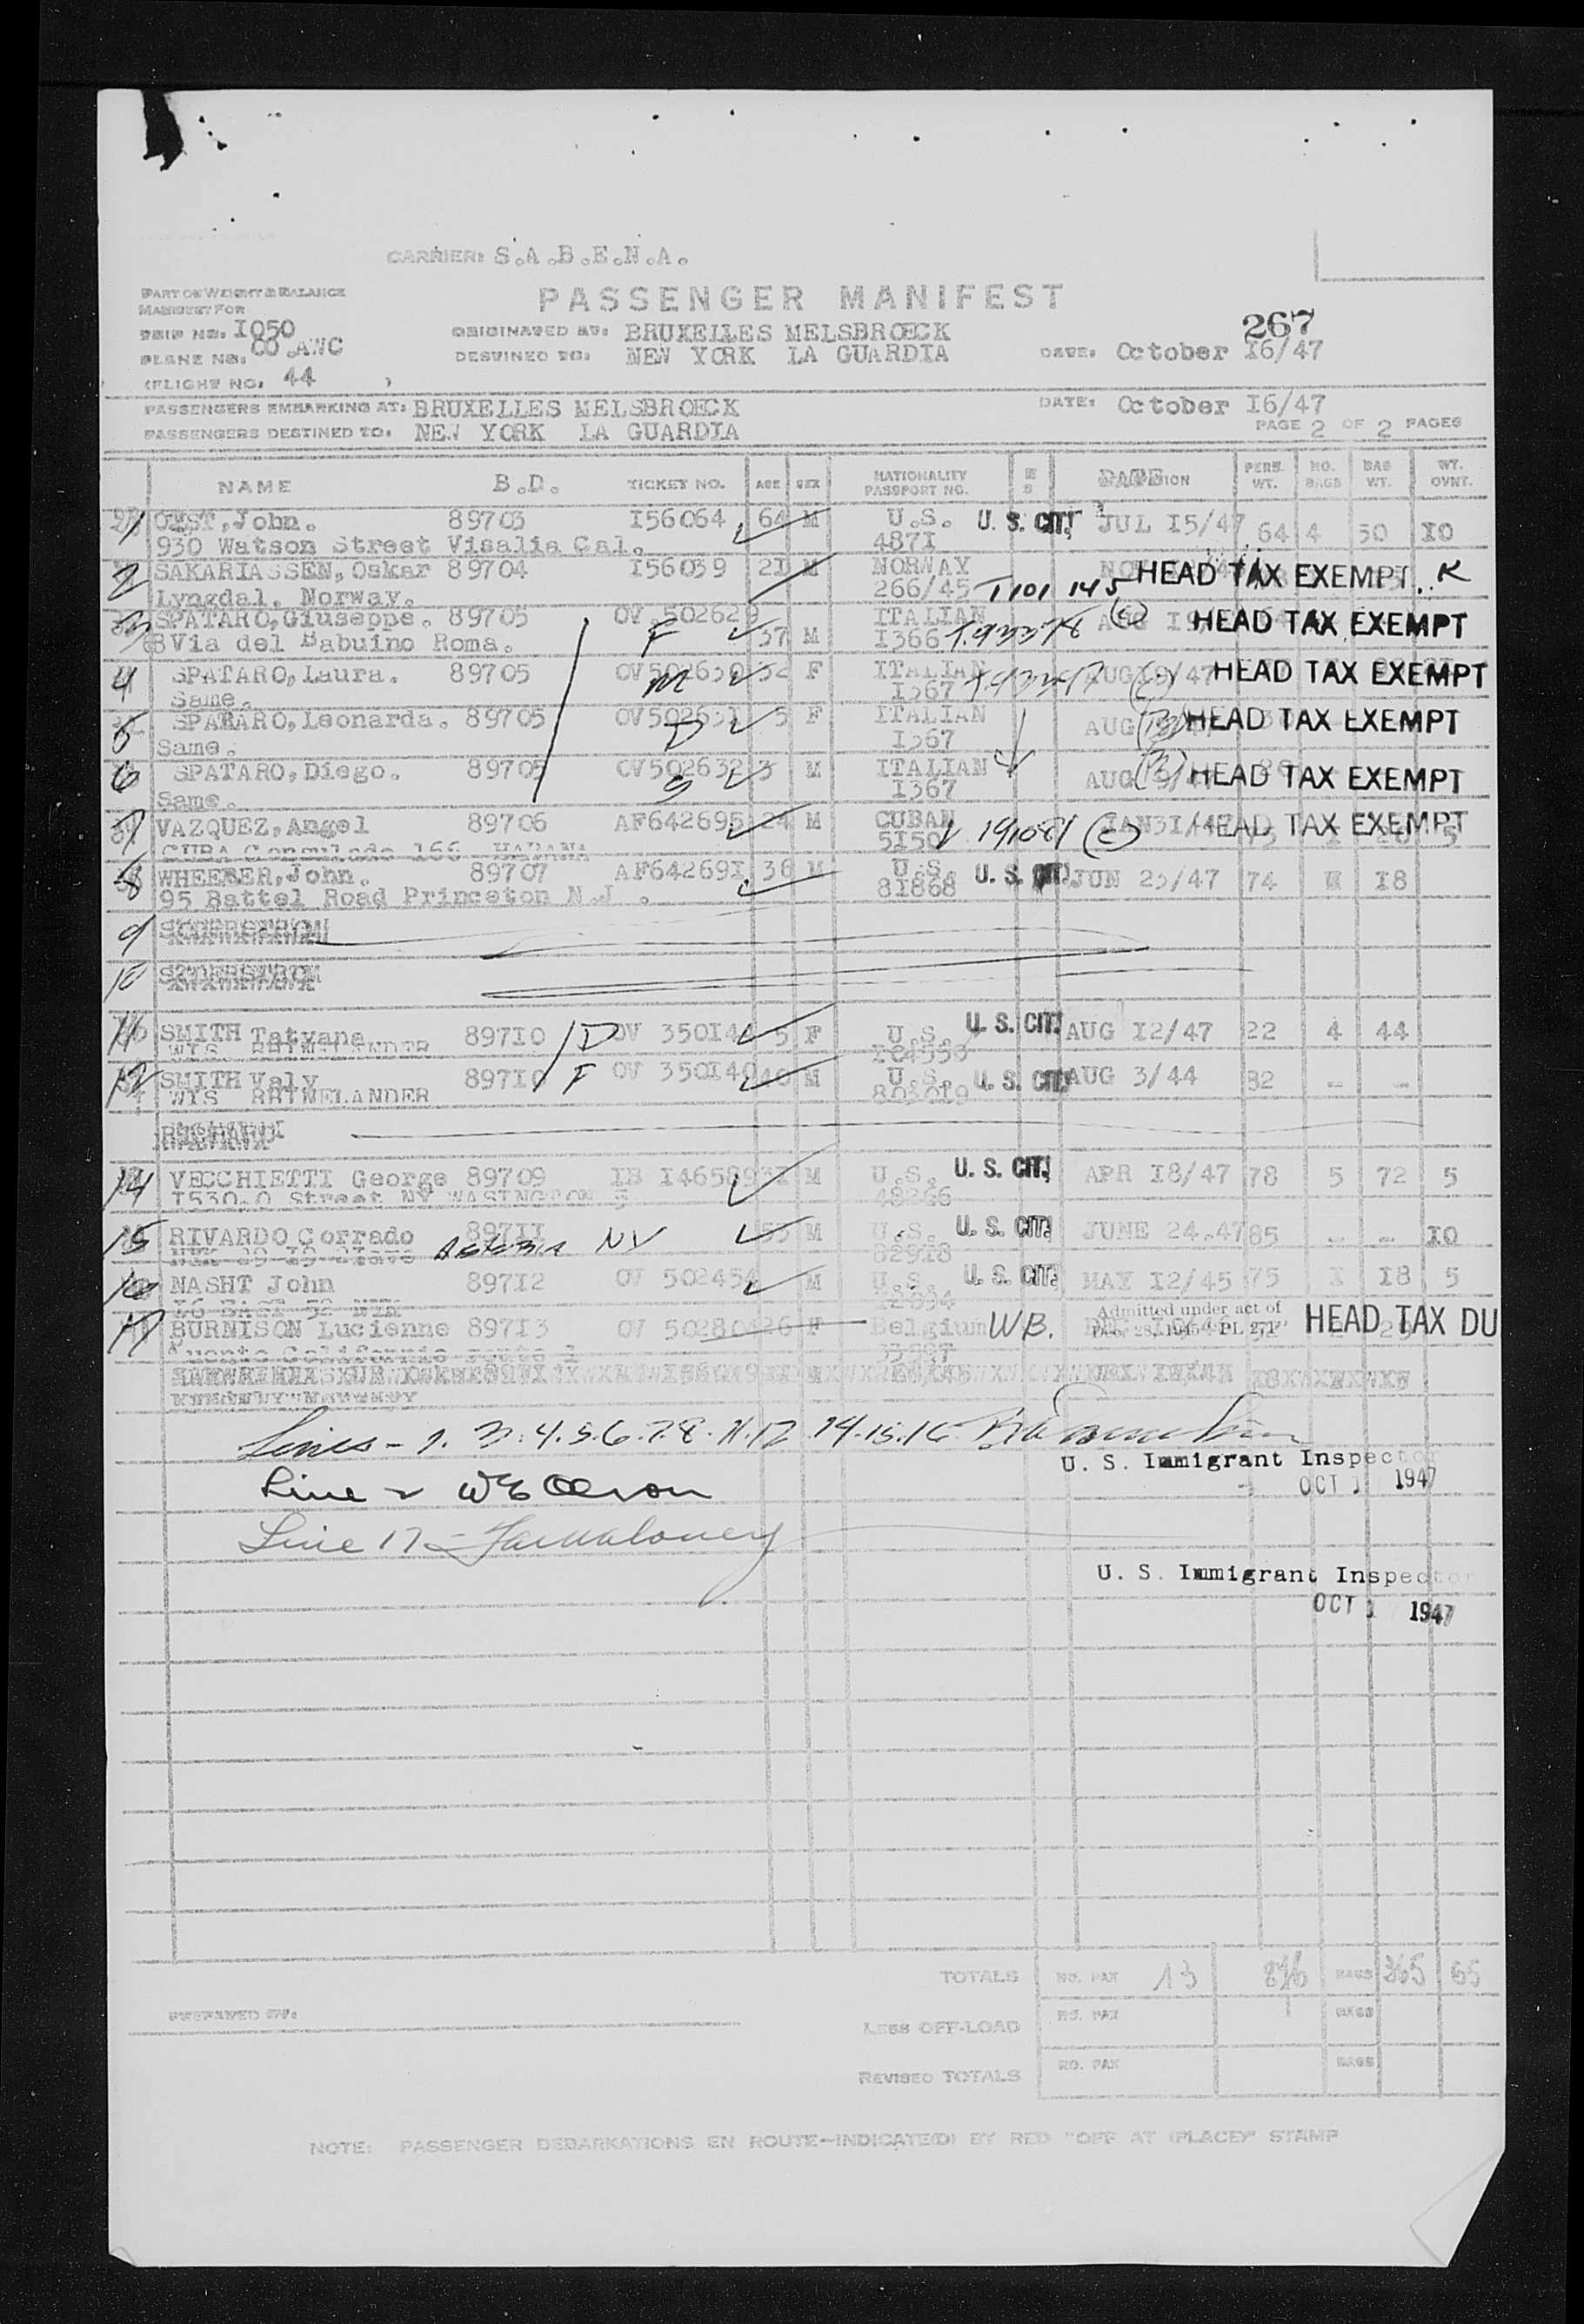 CARRIER: S.A.B.E.N.A.
PART OF WEIGHT & BALANCE
MANIFEST FOR
PASSENGER MANIFEST
TRIP NO. I050
PLANE NO. OO.AWC
(FLIGHT NO. 44 )
ORIGINATED AT: BRUXELLES MELSBROECK
DESTINED TO: NEW YORK LA GUARDIA
267
DATE: October I6/47
PASSENGERS EMBARKING AT: BRUXELLES MELSBROECK
DATE: October I6/47
PASSENGERS DESTINED TO: NEW YORK LA GUARDIA
PAGE 2 OF 2 PAGES
NAME B.D. TICKET NO. AGE SEX NATIONALITY PASSPORT NO. DATE PERS. WT. NO. BAGS BAG WT. WT. OVNT.
1 OEST, John. 89703 I56064 64 M U.S. U. S. CIT. JUL I5/47 64 4 50 I0
930 Watson Street Visalia Cal. 487I
2 SAKARIASSEN, Oskar 89704 I56039 2I M NORWAY HEAD TAX EXEMPT K
Lyngdal. Norway. 266/45 T101 145
3 SPATARO, Giuseppe. 89705 OV 502629 37 M ITALIAN HEAD TAX EXEMPT
Via del Babuino Roma. F I366
4 SPATARO, Laura. 89705 OV502630 32 F ITALIAN AUG I9/47 HEAD TAX EXEMPT
Same. M I367
5 SPATARO, Leonarda. 89705 OV50263I 5 F ITALIAN AUG HEAD TAX EXEMPT
Same. D I367
6 SPATARO, Diego. 89705 OV502632 3 M ITALIAN AUG HEAD TAX EXEMPT
Same. S I367
7 VAZQUEZ, Angel 89706 AF642695 24 M CUBAN HEAD TAX EXEMPT 5
CUBA Consulado 166 HABANA 5I50
8 WHEELER, John. 89707 AF64269I 36 M U.S. U. S. CIT. JUN 25/47 74 I8
95 Battel Road Princeton N.J. 81868
9
10
11 SMITH Tatyana 89710 D OV 350I44 5 F U.S. U. S. CIT. AUG I2/47 22 4 44
WIS RHINELANDER
12 SMITH Valy 89710 F OV 350I40 40 M U.S. U. S. CIT. AUG 3/44 82 - -
WIS RHINELANDER 803019
14 VECCHIETTI George 89709 IB I46589 3I M U.S. U. S. CIT. APR I8/47 78 5 72 5
I530.O Street NY WASINGTON 5 48266
15 RIVARDO Corrado 897II M U.S. U. S. CIT. JUNE 24.47 85 - - I0
NY 82918
16 NASHT John 897I2 OV 502454 M U.S. U. S. CIT. MAY I2/45 75 I I8 5
17 BURNISON Lucienne 897I3 OV 502804 26 F Belgium WB. Admitted under act of HEAD TAX DU
Dec. 28, 1945 PL 271
Lines - 1. 3. 4. 5. 6. 7. 8. 11. 12. 14. 15. 16
U. S. Immigrant Inspector
OCT 1947
Line 2 WE Olson
Line 17 -
U. S. Immigrant Inspector
OCT 1947
TOTALS NO. PAX 13 846 BAGS 365 65
PREPARED BY:
LESS OFF-LOAD NO. PAX BAGS
REVISED TOTALS NO. PAX BAGS
NOTE: PASSENGER DEBARKATIONS EN ROUTE-INDICATE(D) BY RED "OFF AT (PLACE)" STAMP